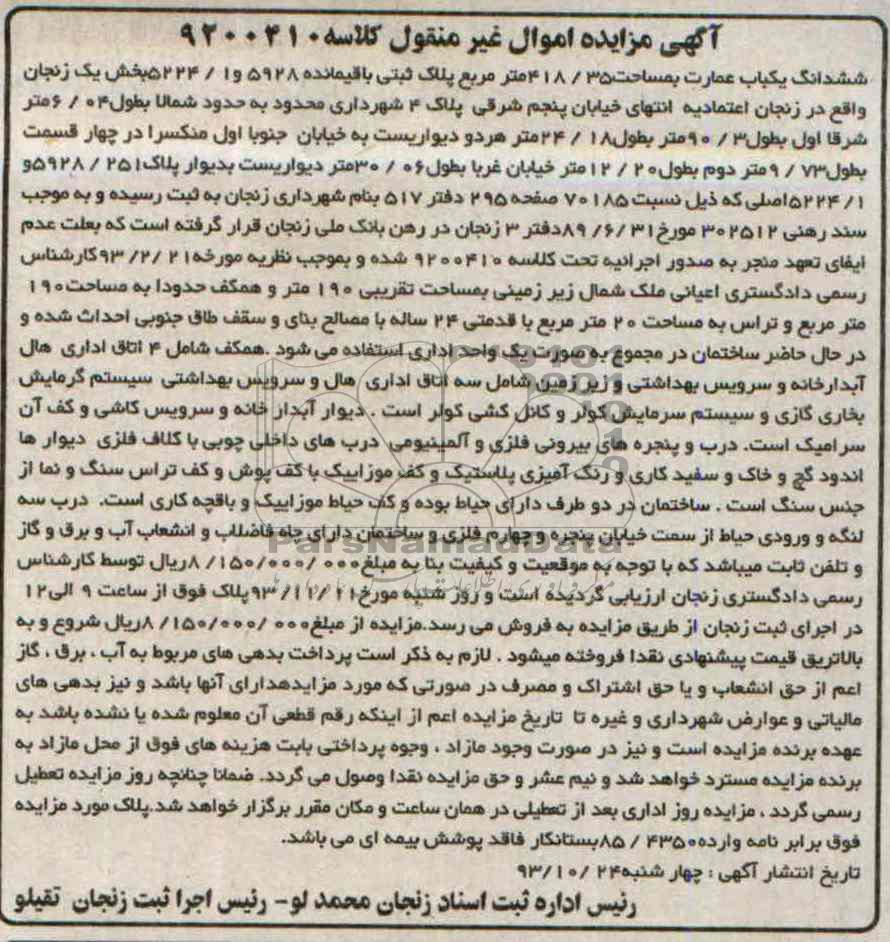 آگهی مزایده اموال غیر منقول کلاسه ۹۲۰۰۴۱۰
ششدانگ یکباب عمارت بمساحت۳۵ / ۴۱۸متر مربع پلاک ثبتی باقیمانده ۵۹۲۸ و۱ / ۵۲۲۴بخش یک زنجان
واقع در زنجان اعتمادیه انتهای خیابان پنجم شرقی پلاک ۴ شهرداری محدود به حدود شمالا بطول۰۴ / ۶متر
شرقا اول بطول۳ / ۹۰متر بطول۱۸ / ۲۴متر هردو دیواریست به خیابان جنوبا اول منکسرا در چهار قسمت
بطول۷۳ / ۹متر دوم بطول۲۰ / ۱۲متر خیابان غربا بطول۰۶ / ۳۰متر دیواریست بدیوار پلاک۲۵۱ / ۵۹۲۸و
۱/ ۵۲۲۴اصلی که ذیل نسبت ۷۰۱۸۵ صفحه ۲۹۵ دفتر ۵۱۷ بنام شهرداری زنجان به ثبت رسیده و به موجب
سند رهنی ۳۰۲۵۱۲ مورخ۳۱ /۶/ ۸۹دفتر ۳ زنجان در رهن بانک ملی زنجان قرار گرفته است که بعلت عدم
ایفای تعهد منجر به صدور اجرائیه تحت کلاسه ۹۲۰۰۴۱۰ شده و بموجب نظریه مورخه۲۱ /۲/ ۹۳کارشناس
رسمی دادگستری اعیانی ملک شمال زیر زمینی بمساحت تقریبی ۱۹۰ متر و همکف حدودا به مساحت۱۹۰
متر مربع و تراس به مساحت ۲۰ متر مربع با قدمتی ۲۴ ساله با مصالح بنای و سقف طاق جنوبی احداث شده و
در حال حاضر ساختمان در مجموع به صورت یک واحد اداری استفاده می شود .همکف شامل ۴ اتاق اداری هال
آبدارخانه و سرویس بهداشتی و زیر زمین شامل سه اتاق اداری هال و سرویس بهداشتی سیستم گرمایش
بخاری گازی و سیستم سرمایش کولر و کانل کشی کولر است . دیوار آبدار خانه و سرویس کاشی و کف آن
سرامیک است. درب و پنجره های بیرونی فلزی و آلمینیومی درب های داخلی چوبی با کلاف فلزی دیوار ها
اندود گچ و خاک و سفید کاری و رنگ آمیزی پلاستیک و کف موزاییک با کف پوش و کف تراس سنگ و نما از
جنس سنگ است . ساختمان در دو طرف دارای حیاط بوده و کف حیاط موزاییک و باقچه کاری است. درب سه
لنگه و ورودی حیاط از سمت خیابان پنجره و چهارم فلزی و ساختمان دارای چاه فاضلاب و انشعاب آب و برق و گاز
و تلفن ثابت میباشد که با توجه به موقعیت و کیفیت بنا به مبلغ۰۰۰ /۱۵۰/۰۰۰/ ۸ریال توسط کارشناس
رسمی دادگستری زنجان ارزیابی گردیده است و روز شنبه مورخ۱۱ /۱۱/ ۹۳پلاک فوق از ساعت ۹ الی۱۲
در اجرای ثبت زنجان از طریق مزایده به فروش می رسد.مزایده از مبلغ۰۰۰ /۱۵۰/۰۰۰/ ۸ریال شروع و به
بالاتریق قیمت پیشنهادی نقدا فروخته میشود . لازم به ذکر است پرداخت بدهی های مربوط به آب ، برق ، گاز
اعم از حق انشعاب و یا حق اشتراک و مصرف در صورتی که مورد مزایدهدارای آنها باشد و نیز بدهی های
مالیاتی و عوارض شهرداری و غیره تا تاریخ مزایده اعم از اینکه رقم قطعی آن معلوم شده یا نشده باشد به
عهده برنده مزایده است و نیز در صورت وجود مازاد ، وجوه پرداختی بابت هزینه های فوق از محل مازاد به
برنده مزایده مسترد خواهد شد و نیم عشر و حق مزایده نقدا وصول می گردد. ضمانا چنانچه روز مزایده تعطیل
رسمی گردد ، مزایده روز اداری بعد از تعطیلی در همان ساعت و مکان مقرر برگزار خواهد شد.پلاک مورد مزایده
فوق برابر نامه وارده۴۳۵۰ / ۸۵بستانکار فاقد پوشش بیمه ای می باشد.
تاریخ انتشار آگهی : چهار شنبه۲۴ /۱۰/ ۹۳
رئیس اداره ثبت اسناد زنجان محمد لو- رئیس اجرا ثبت زنجان تقیلو
ParsNamadData